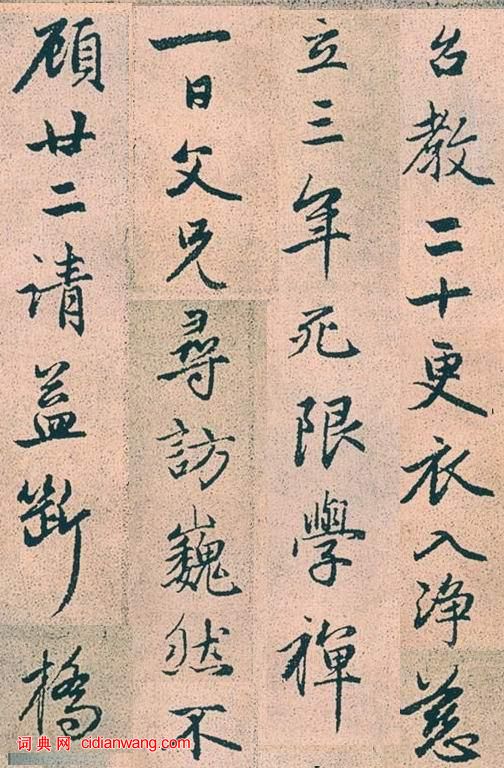 台教二十更衣入浄慈
立三年死限學禅
一日父兄尋訪巍然不
顧廿二请益斷橋
词典网 cidianwang.com